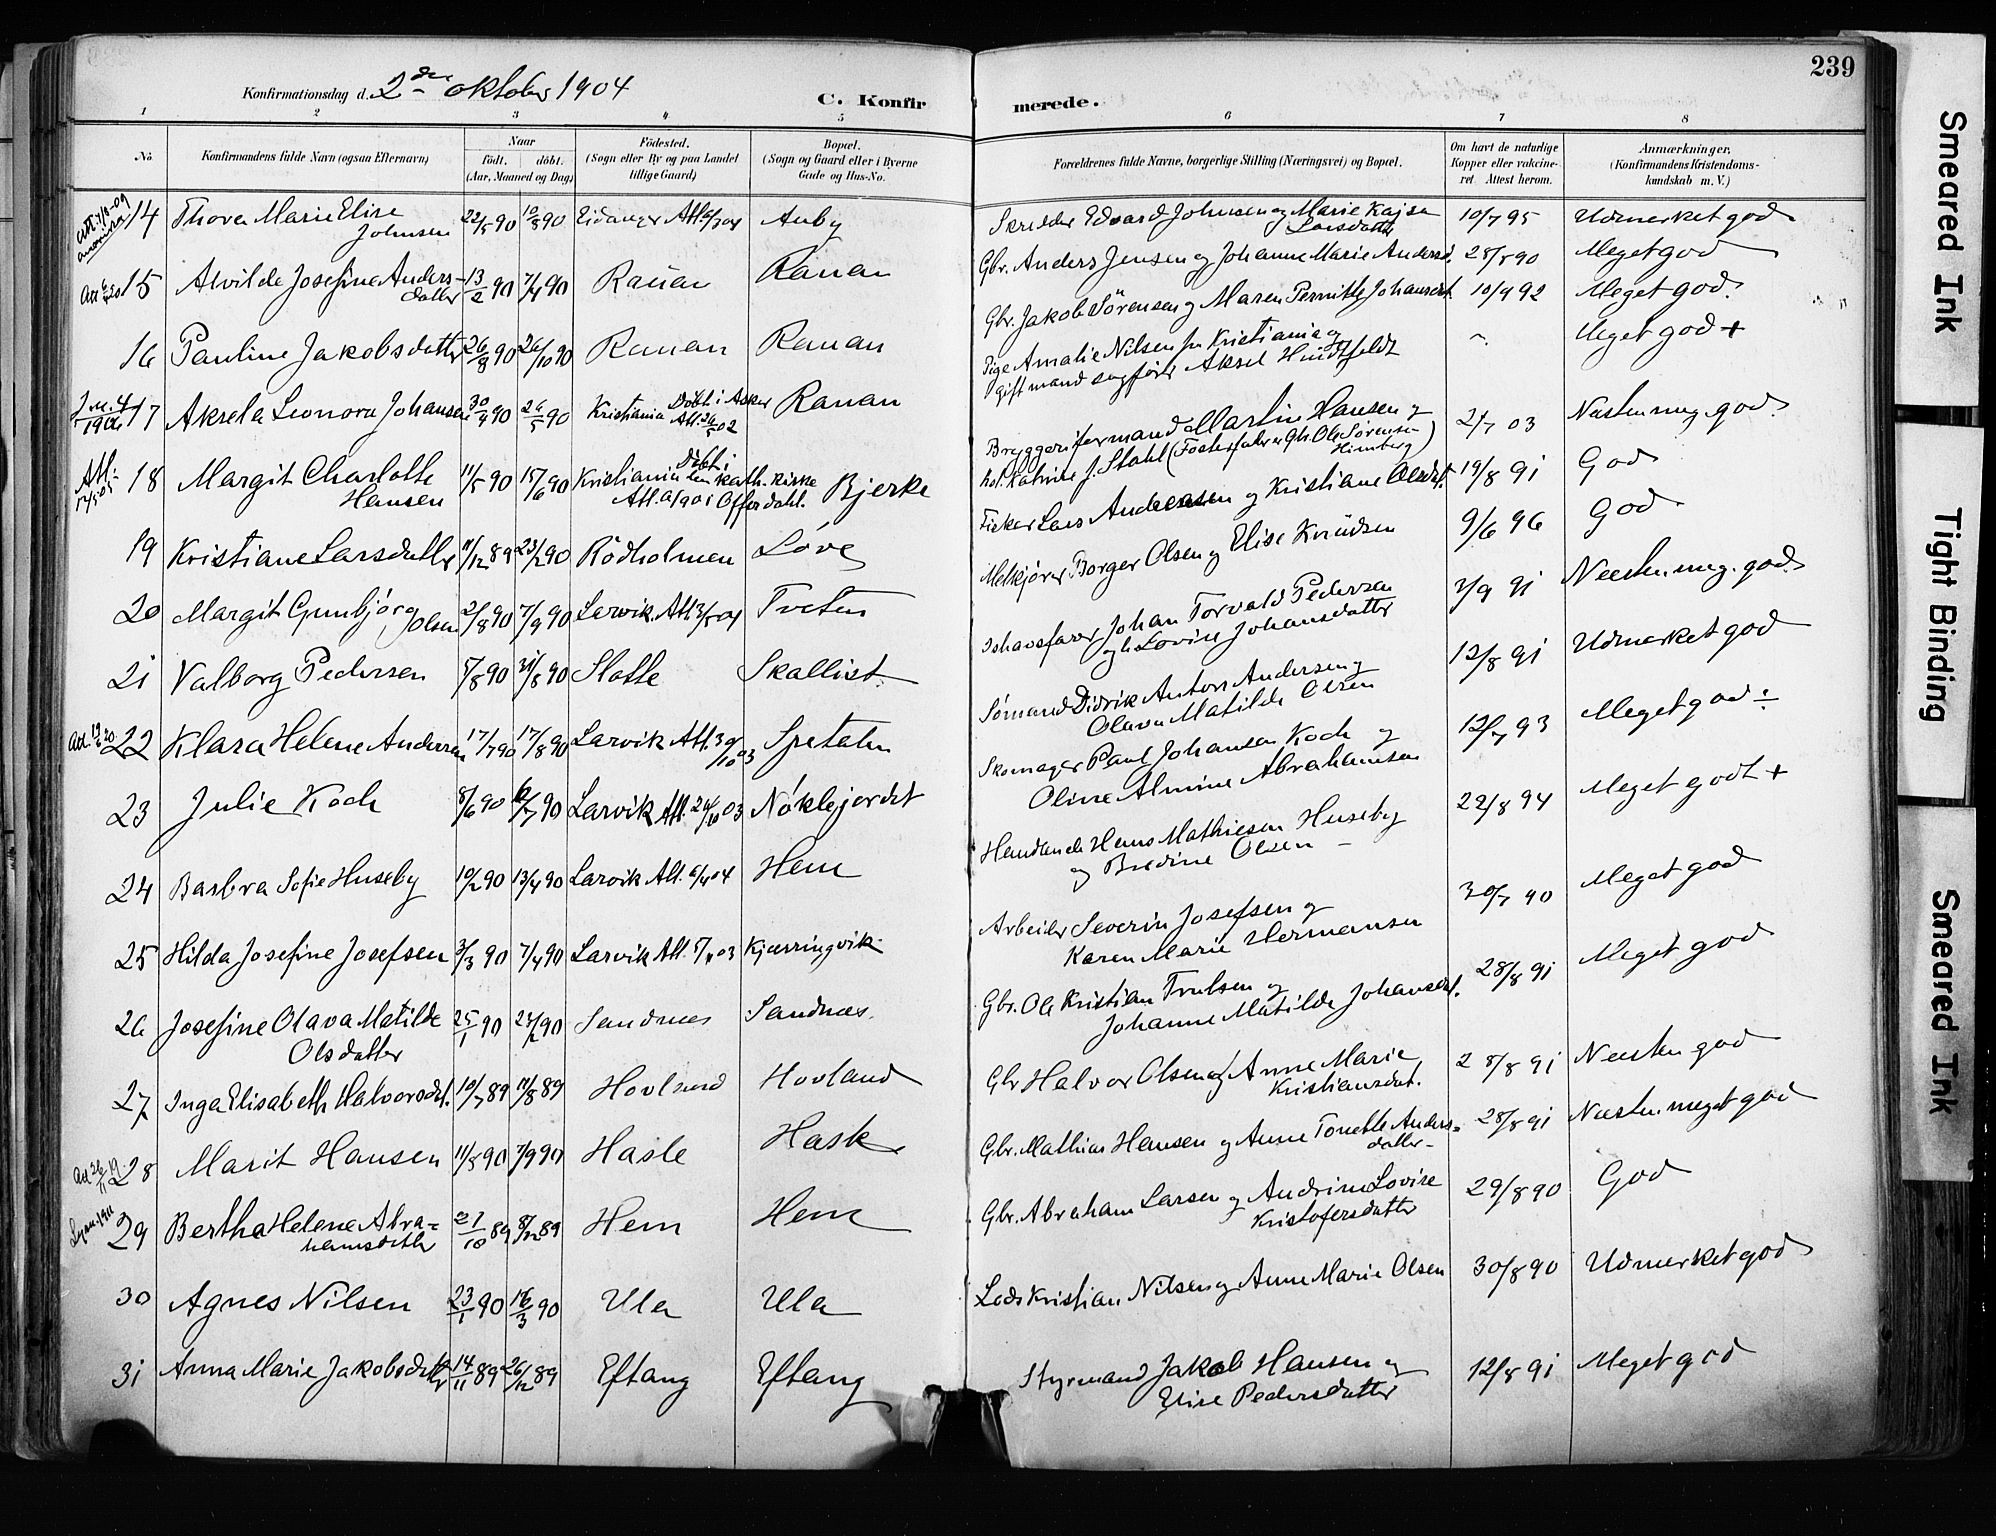 239
Konfirmationsdag d. 2den oktober 1904
C. Konfirmerede.
1 2 3 4 5 6 7 8
No.
Konfirmandens fulde Navn (ogsaa Efternavn)
Naar
født. døbt.
(Aar, Maaned og Dag)
Fødested.
(Sogn eller By og paa Landet
tillige Gaard)
Bopæl.
(Sogn og Gaard eller i Byerne
Gade og Hus-No.
Forældrenes fulde Navne, borgerlige Stilling (Næringsvei) og Bopæl.
Om havt de naturlige
Kopper eller vakcine-
ret. Attest herom.
Anmærkninger,
(Konfirmandens Kristendoms-
kundskab m. V.)
14 Thora Marie Elise Johnsen 22/5 90 10/8 90 Eidanger Auby Skredder Edvard Johnsen og Marie Kajsa Larsdatter 10/7 95 Udmerket god
15 Alvilde Josefine Andersdatter 13/2 90 7/4 90 Rauan Rauan Gbr. Anders Jensen og Johanne Marie Andersd. 28/8 90 Meget god
16 Pauline Jakobsdatter 26/8 90 26/10 90 Rauan Rauan Gbr. Jakob Sörensen og Maren Pernille Johansdat. 10/9 92 Meget god.
17 Aksela Leonora Johansen 30/4 90 26/5 90 Kristiania Döbt i Asker Rauan Pige Amalie Nilsen fra Kristiania og
gift mand sagförer Aksel Meget god +
18 Margit Charlotte Hansen 11/5 90 15/6 90 Kristiania Döbt i kath. kirke Bjerke Bryggeriformand Martin Hansen og
Katrine J. Stahl (Fosterfader Gbr. Ole Sörensen Himberg) 2/7 03 Næsten meg. god.
19 Kristiane Larsdatter 11/12 89 23/2 90 Rödholmen Löve Fisker Lars Andersen og Kristiane Olsdat. 19/8 91 God
20 Margit Gunbjörg Olsen 2/8 90 7/9 90 Larvik Att. Tveten Melkjörer Borger Olsen og Elise Knudsen 9/6 96 God
21 Valborg Pedersen 5/8 90 31/8 90 Slotte Skallist Ishavsfarer Johan Torvald Pedersen
og h. Lovise Johansdatter 2/9 91 Næsten meg. god.
22 Klara Helene Andersen 17/7 90 17/8 90 Larvik Att. 30/10 03 Spetalen Sømand Didrik Anton Andersen og
Olava Matilde Olsen 12/8 91 Udmerket god
23 Julie Koch 8/6 90 6/7 90 Larvik Att. 24/10 03 Nøklejordet Skomager Paul Johansen Koch og
Oline Almine Abrahamsen 12/7 93 Meget god ÷
24 Barbra Sofie Huseby 10/2 90 13/4 90 Larvik Att. 6/4 04 Hem Handlende Hans Mathiesen Huseby
og Bredine Olsen 22/8 94 Meget godt +
25 Hilda Josefine Josefsen 3/3 90 7/4 90 Larvik Att. Kjærringvik Arbeider Severin Josefsen og
Karen Marie Hermansen 30/7 90 Meget god
26 Josefine Olava Matilde Olsdatter 25/1 90 24/2 90 Sandnæs Sandnæs. Gbr. Ole Kristian Trulsen og
Johanne Matilde Johansdat. 28/8 91 Meget god
27 Inga Elisabeth Halvorsdat. 10/7 89 11/8 89 Hovland Hovland Gbr Halvor Olsen og Anne Marie
Kristiansdat. 28/8 91 Næsten god
28 Marit Hansen 11/8 90 7/9 90 Hasle Hask Gbr. Mathias Hansen og Anne Tonette Andersdatter 28/8 91 Næsten meget god
29 Bertha Helene Abrahamsdatter 27/10 89 8/12 89 Hem Hem Gbr. Abraham Larsen og Andrine Lovise
Kristofersdatter 29/8 90 God
30 Agnes Nilsen 23/1 90 16/3 90 Ula Ula Lods Kristian Nilsen og Anne Marie Olsen 30/8 90 Udmerket god
31 Anna Marie Jakobsdatter 14/11 89 26/12 89 Eftang Eftang Styrmand Jakob Hansen og
Elise Pedersdatter 12/8 91 Meget god
Smeared Ink
Tight Binding
Smeared Ink